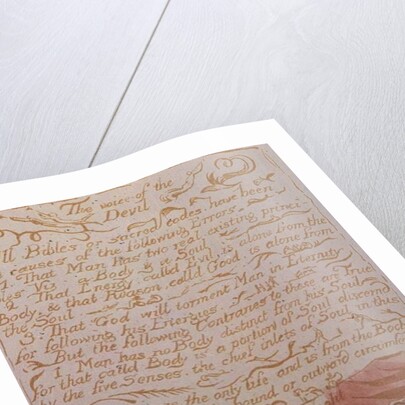 The voice of the
Devil
All Bibles or sacred codes. have been
causes of the following Errors.
1. That Man has two real existing princi
Viz: a Body & a Soul.
& That Energy. calld Evil. is alone from the
Body. & that Reason. calld Good. is alone from
the Soul.
3. That God will torment Man in Eternity
for following his Energies.
But the following Contraries to these are True
1 Man has no Body distinct from his Soul
for that calld Body is a portion of Soul discernd
by the five Senses. the chief inlets of Soul in this
is the only life and is from the Body
bound or outward circumfe